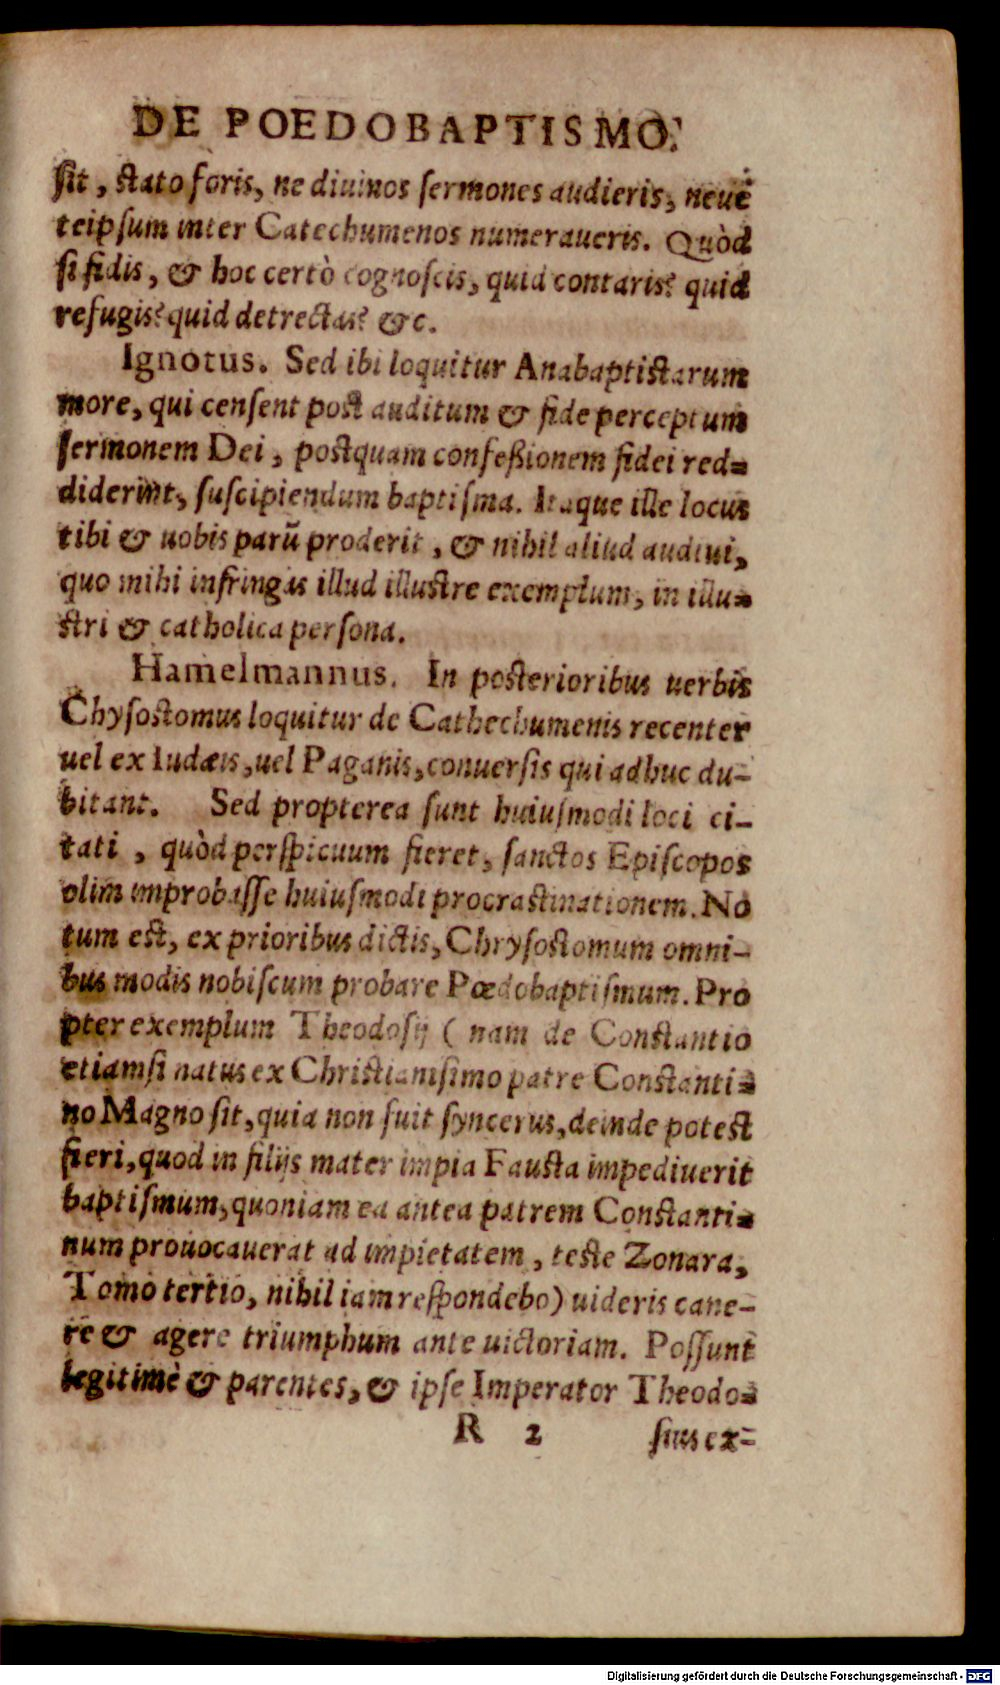 DE POEDOBAPTISMO.
sit, stato foris, ne diuinos sermones audieris, neue
teipsum inter Catechumenos numeraueris. Quòd
si fidis, & hoc certò cognoscis, quid contaris? quid
refugis? quid detrectas? &c.
Ignotus. Sed ibi loquitur Anabaptistarum
more, qui censent post auditum & fide perceptum
sermonem Dei, postquam confeßionem fidei red=
diderint, suscipiendum baptisma. Itaque ille locus
tibi & uobis parũ proderit, & nihil aliud audiui,
quo mihi infringas illud illustre exemplum, in illu=
stri & catholica persona.
Hamelmannus. In posterioribus uerbis
Chysostomus loquitur de Cathechumenis recenter
uel ex Iudæis, uel Paganis, conuersis qui adhuc du-
bitant. Sed propterea sunt huiusmodi loci ci-
tati, quòd perspicuum fieret, sanctos Episcopos
olim improbasse huiusmodi procrastinationem. No
tum est, ex prioribus dictis, Chrysostomum omni-
bus modis nobiscum probare Pœdobaptismum. Pro
pter exemplum Theodosij ( nam de Constantio
etiamsi natus ex Christianisimo patre Constanti=
no Magno sit, quia non fuit syncerus, deinde potest
fieri, quod in filijs mater impia Fausta impediuerit
baptismum, quoniam ea antea patrem Constanti=
num prouocauerat ad impietatem, teste Zonara,
Tomo tertio, nihil iam respondebo) uideris cane-
re & agere triumphum ante uictoriam. Possunt
legitimè & parentes, & ipse Imperator Theodo=
R 2 sius ex=
Digitalisierung gefördert durch die Deutsche Forschungsgemeinschaft - DFG